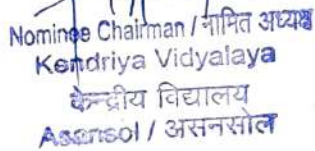 Nominee Chairman / नामित अध्यक्ष
Kendriya Vidyalaya
केन्द्रीय विद्यालय
Asansol / असनसोल